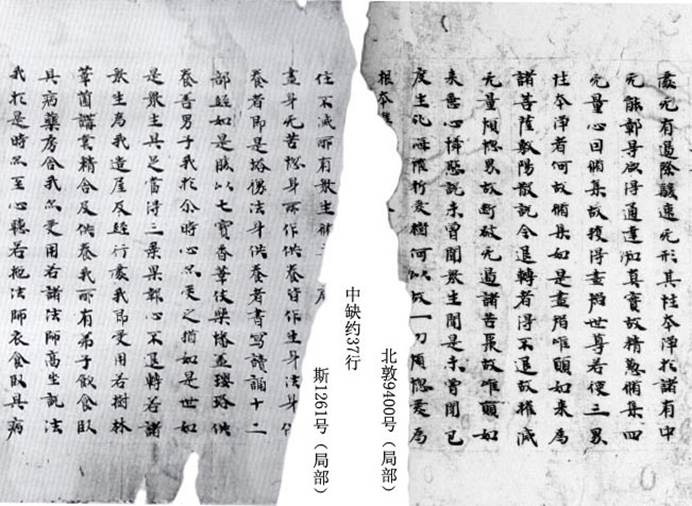 處无有過除速无形其性本淨於諸有中
无能鄣导欲得通達知真實故精懃脩集四
无量心回脩集故獲得盡智世尊若使三界
性本淨者何故脩集如是盡智唯願如来為
諸菩薩敷陽散說令退轉者得不退故摧滅
无量煩惱界故斷破无邊諸苦聚故唯願如
来慈心憐愍說未曾聞衆生聞是未曾聞已
度生死海摧折愛樹何以故一切煩惱愛為
根本
北敦9400号（局部）
中缺约37行
斯1261号（局部）
住不滅所有衆生
盡身无苦惱身所作供養皆作生身法身
養者即是塔像法身供養者書寫讀誦十二
部經如是勝以七寶香華伎樂幡蓋瓔珞供
養善男子我於尒時心忽受之猶如是世如
是衆生具足當得三果果報心不退轉若諸
衆生為我造崖及經行處我即受用若樹林
華菌講堂精舍及供養我所有弟子飲食臥
具病藥房舍我忽受用若諸法師高坐說法
我於是時忽至心聽若施法師衣食臥具病